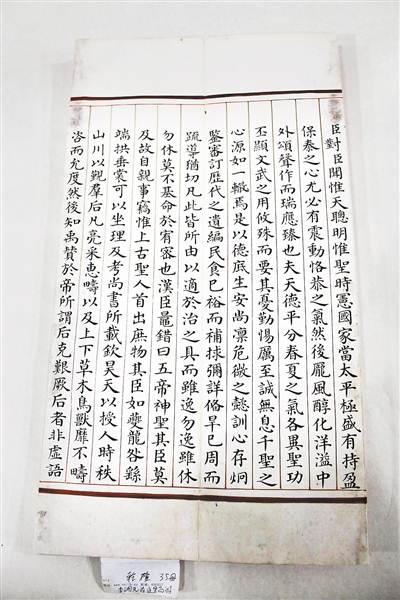 臣對臣聞惟天聰明惟聖時憲國家當太平極盛有持盈
保泰之心尤必有震動恪恭之氣然後厖風醇化洋溢中
外頌聲作而瑞應臻也夫天德平分春夏之氣各異聖功
丕顯文武之用攸殊而要其憂勤惕厲至誠無息千聖之
心源如一轍焉是以德底生安尚凛危微之懿訓心存炯
鑒審訂歷代之遺編民食已裕而補捄彌詳偹旱已周而
疏導猶切凡此皆所由以適於治之具而雖逸勿逸雖休
勿休莫不基命於宥宻也漢臣鼂錯曰五帝神聖其臣莫
及故自親事竊惟上古聖人首出庶物其臣如夔龍咎繇
端拱垂裳可以坐理及考尚書所載欽昊天以授人時秩
山川以覲羣后凡亮采惠疇以及上下草木鳥獸靡不疇
咨而允度然後知禹贊於帝所謂后克艱厥后者非虛語